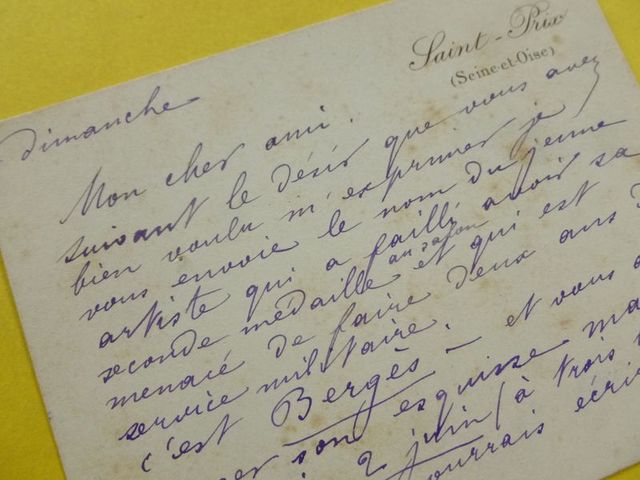 Saint-Prix
(Seine-et-Oise)
dimanche
Mon cher ami.
suivant le désir que vous avez
bien voulu m'exprimer je
vous envoie le nom du jeune
artiste qui a failli avoir sa
au salon
seconde médaille et qui est
menacé de faire deux ans d
service militaire.
c'est Bergès – et vous
son esquisse ma
2 juin (à trois
ourrais écri